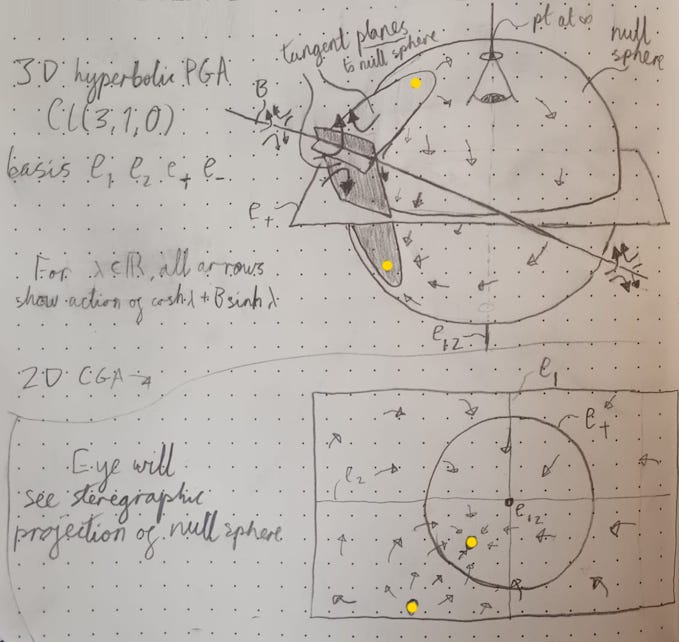 3D hyperbolic PGA
Cl(3,1,0)
basis e₁ e₂ e₊ e₋
tangent planes
to null sphere
pt at ∞
null
sphere
B
e₊
For λ∈ℝ, all arrows
show action of cosh λ + B sinh λ
e₁₂
2D CGA →
e₁
e₊
e₂
e₁₂
Eye will
see steregraphic
projection of null sphere